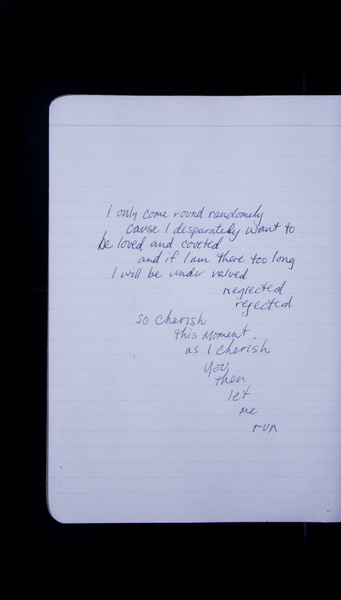 I only come round randomely
cause I desparately want to
be loved and coveted
and if I am there too long
I will be under valued
neglected
rejected
so cherish
this moment.
as I cherish
you
then
let
me
run